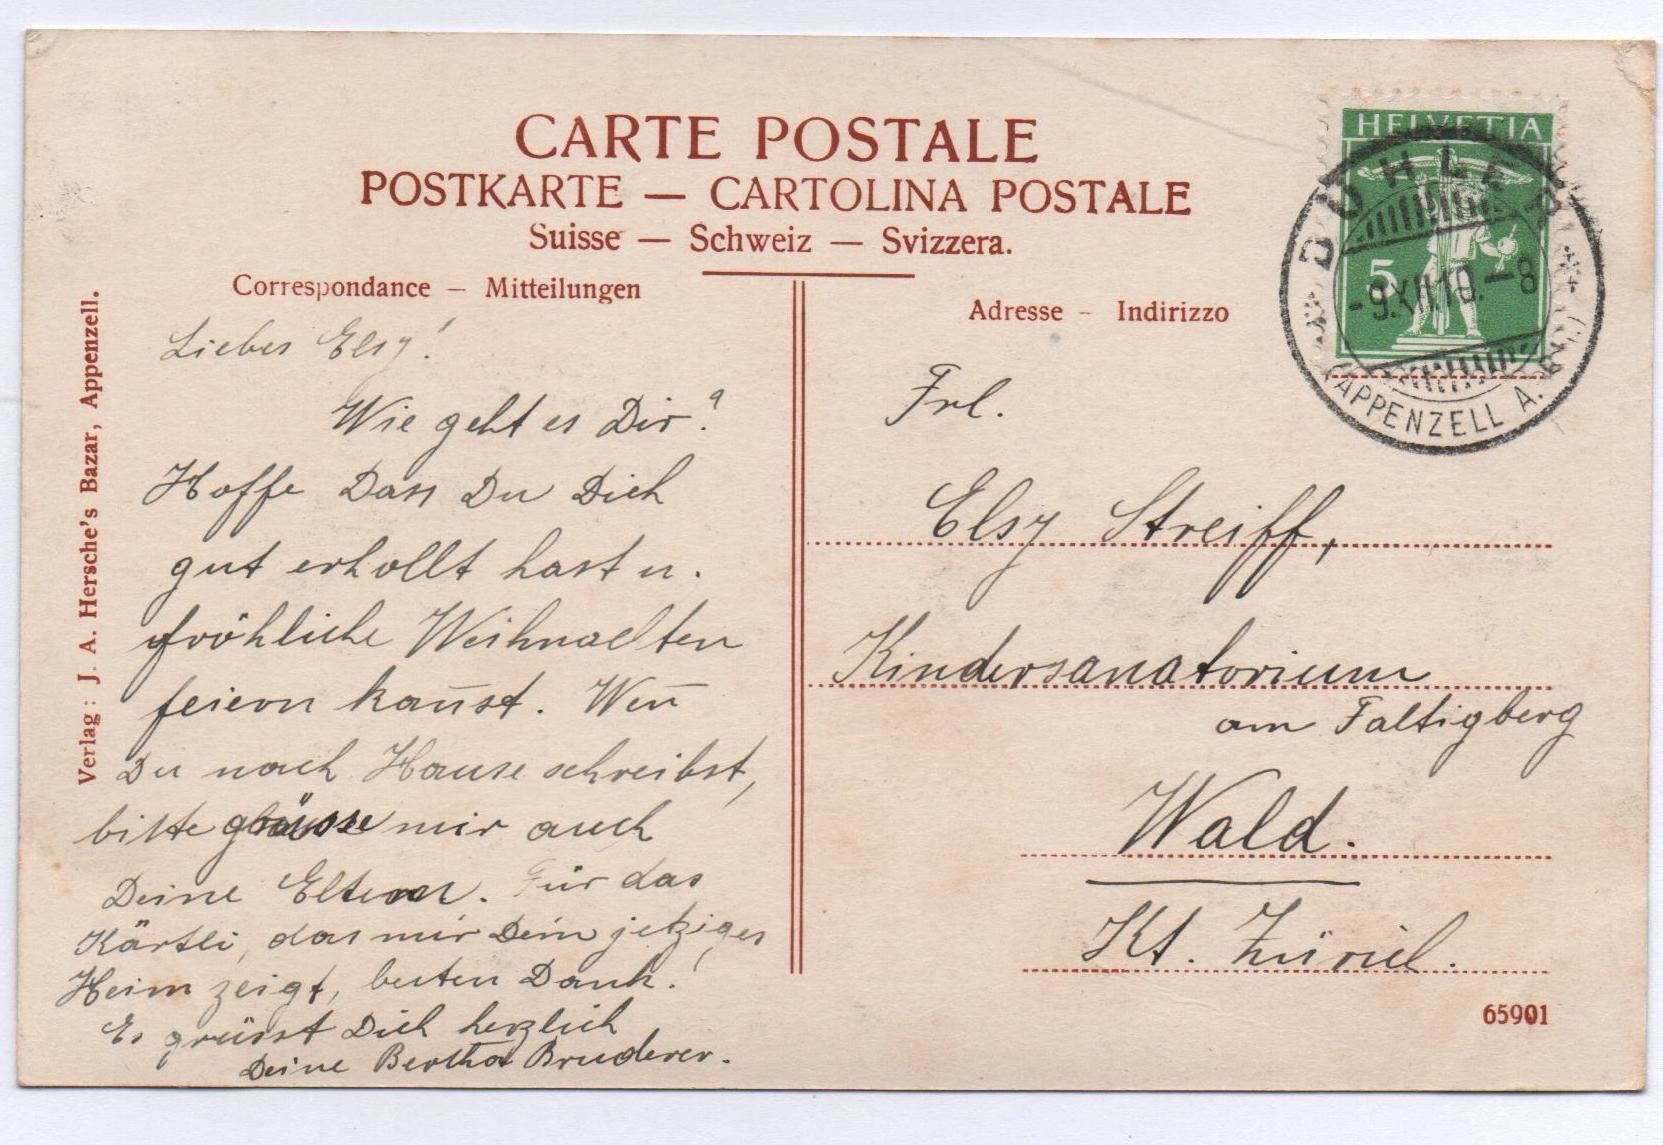 CARTE POSTALE
POSTKARTE — CARTOLINA POSTALE
Suisse — Schweiz — Svizzera.
Correspondance – Mitteilungen
Adresse – Indirizzo
Verlag: J. A. Hersche's Bazar, Appenzell.
Liebes Elsy!
Wie geht es Dir?
Hoffe Dass Du Dich
gut erhollt hast u.
fröhliche Weihnachten
feiern kan̄st. Wen̄
Du nach Hause schreibst,
bitte grüsse mir auch
Deine Eltern. Für das
Kärtli, das mir Dein jetziges
Heim zeigt, besten Dank!
Es grüsst Dich herzlich
Deine Bertha Bruderer.
HELVETIA
5
BÜHLER
-9.XII.10.—8
(APPENZELL A.R.)
Frl.
Elsy Streiff,
Kindersanatorium
am Faltigberg
Wald.
Kt. Zürich.
65901